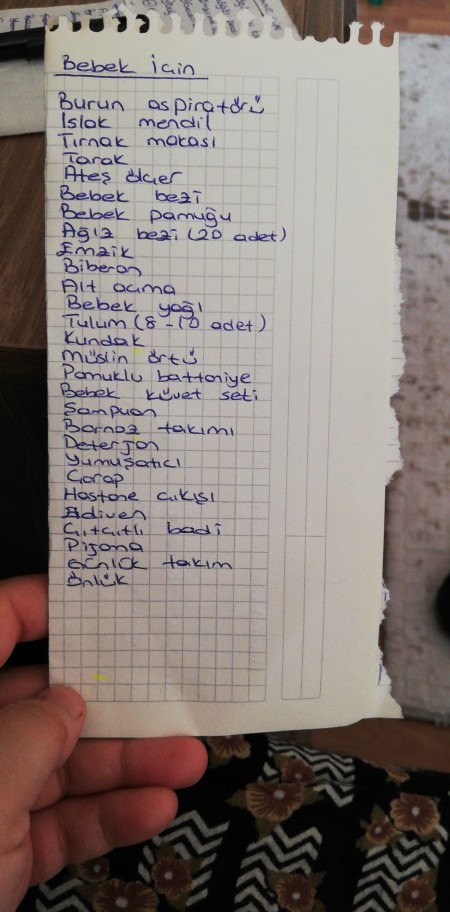 Bebek İçin
Burun aspiratörü
Islak mendil
Tırnak makası
Tarak
Ateş ölçer
Bebek bezi
Bebek pamuğu
Ağız bezi (20 adet)
Emzik
Biberon
Alt açma
Bebek yağı
Tulum (8-10 adet)
Kundak
Müslin örtü
Pamuklu battaniye
Bebek küvet seti
Şampuan
Bornoz takımı
Deterjan
Yumuşatıcı
Çorap
Hastane çıkışı
Eldiven
Çıtçıtlı badi
Pijama
Günlük takım
Önlük